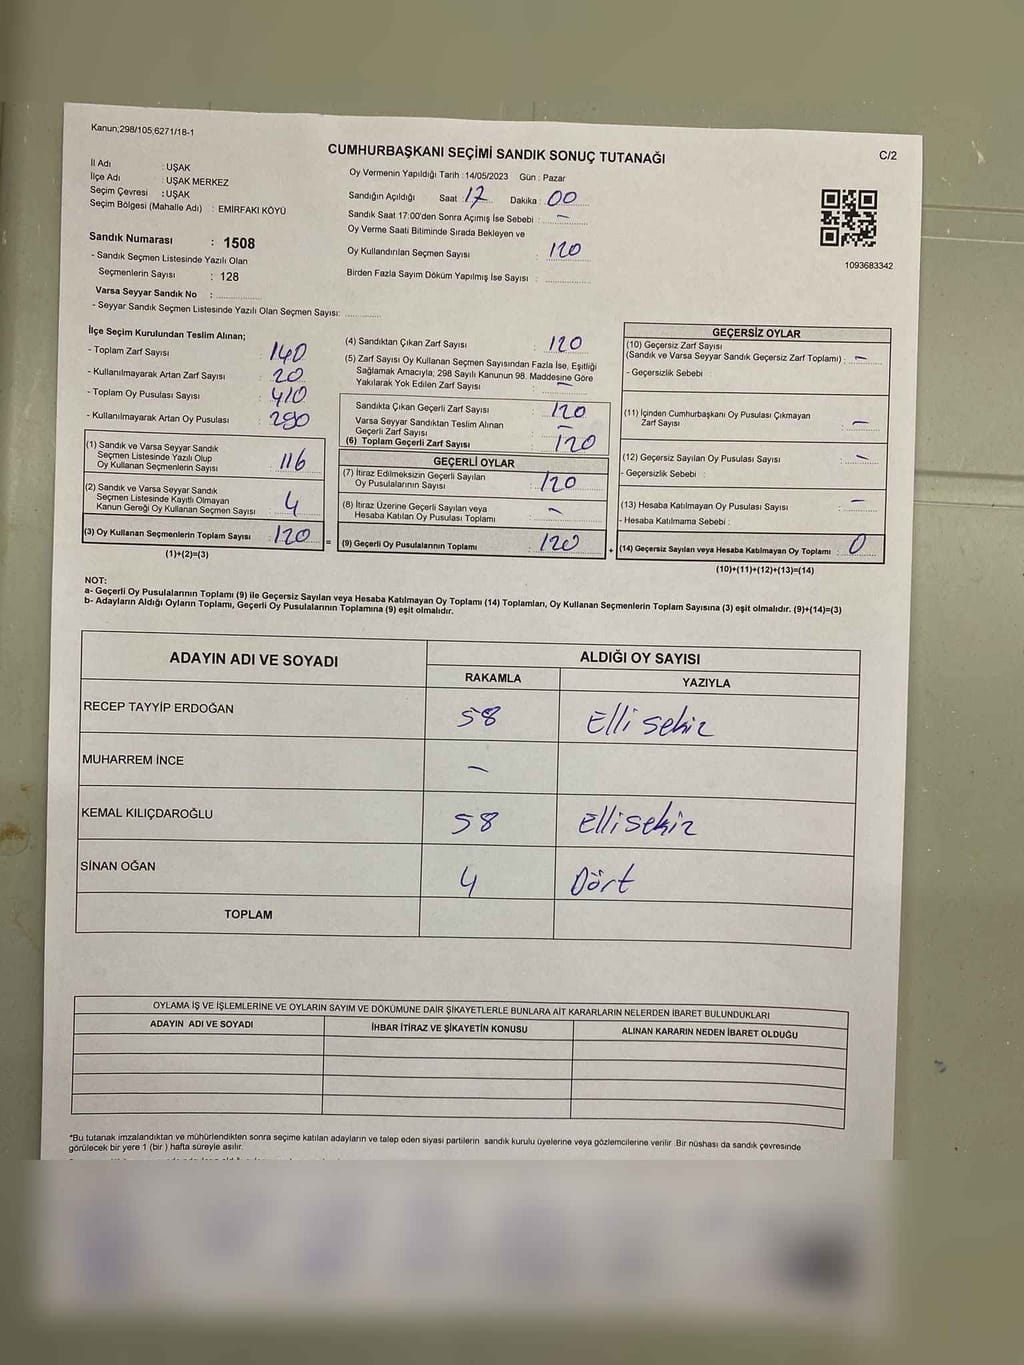 Kanun;298/105;6271/18-1
C/2
CUMHURBAŞKANI SEÇİMİ SANDIK SONUÇ TUTANAĞI
İl Adı : UŞAK
İlçe Adı : UŞAK MERKEZ
Seçim Çevresi : UŞAK
Seçim Bölgesi (Mahalle Adı) : EMİRFAKI KÖYÜ
Sandık Numarası : 1508
- Sandık Seçmen Listesinde Yazılı Olan
Seçmenlerin Sayısı : 128
Varsa Seyyar Sandık No :
- Seyyar Sandık Seçmen Listesinde Yazılı Olan Seçmen Sayısı:
Oy Vermenin Yapıldığı Tarih : 14/05/2023 Gün : Pazar
Sandığın Açıldığı Saat : 17 Dakika : 00
Sandık Saat 17:00'den Sonra Açımış İse Sebebi : -
Oy Verme Saati Bitiminde Sırada Bekleyen ve
Oy Kullandırılan Seçmen Sayısı : 120
Birden Fazla Sayım Döküm Yapılmış İse Sayısı :
1093683342
İlçe Seçim Kurulundan Teslim Alınan;
- Toplam Zarf Sayısı : 140
- Kullanılmayarak Artan Zarf Sayısı : 20
- Toplam Oy Pusulası Sayısı : 410
- Kullanılmayarak Artan Oy Pusulası : 290
(1) Sandık ve Varsa Seyyar Sandık
Seçmen Listesinde Yazılı Olup
Oy Kullanan Seçmenlerin Sayısı : 116
(2) Sandık ve Varsa Seyyar Sandık
Seçmen Listesinde Kayıtlı Olmayan
Kanun Gereği Oy Kullanan Seçmen Sayısı : 4
(3) Oy Kullanan Seçmenlerin Toplam Sayısı : 120
(1)+(2)=(3)
(4) Sandıktan Çıkan Zarf Sayısı : 120
(5) Zarf Sayısı Oy Kullanan Seçmen Sayısından Fazla İse, Eşitliği
Sağlamak Amacıyla, 298 Sayılı Kanunun 98. Maddesine Göre
Yakılarak Yok Edilen Zarf Sayısı : -
Sandıkta Çıkan Geçerli Zarf Sayısı : 120
Varsa Seyyar Sandıktan Teslim Alınan
Geçerli Zarf Sayısı : -
(6) Toplam Geçerli Zarf Sayısı : 120
GEÇERLİ OYLAR
(7) İtiraz Edilmeksizin Geçerli Sayılan
Oy Pusulalarının Sayısı : 120
(8) İtiraz Üzerine Geçerli Sayılan veya
Hesaba Katılan Oy Pusulası Toplamı : -
= (9) Geçerli Oy Pusulalarının Toplamı : 120
GEÇERSİZ OYLAR
(10) Geçersiz Zarf Sayısı
(Sandık ve Varsa Seyyar Sandık Geçersiz Zarf Toplamı) : -
- Geçersizlik Sebebi :
(11) İçinden Cumhurbaşkanı Oy Pusulası Çıkmayan
Zarf Sayısı : -
(12) Geçersiz Sayılan Oy Pusulası Sayısı : -
- Geçersizlik Sebebi :
(13) Hesaba Katılmayan Oy Pusulası Sayısı : -
- Hesaba Katılmama Sebebi :
+ (14) Geçersiz Sayılan veya Hesaba Katılmayan Oy Toplamı : 0
(10)+(11)+(12)+(13)=(14)
NOT:
a- Geçerli Oy Pusulalarının Toplamı (9) ile Geçersiz Sayılan veya Hesaba Katılmayan Oy Toplamı (14) Toplamları, Oy Kullanan Seçmenlerin Toplam Sayısına (3) eşit olmalıdır. (9)+(14)=(3)
b- Adayların Aldığı Oyların Toplamı, Geçerli Oy Pusulalarının Toplamına (9) eşit olmalıdır.
ADAYIN ADI VE SOYADI ALDIĞI OY SAYISI
RAKAMLA YAZIYLA
RECEP TAYYİP ERDOĞAN 58 Elli sekiz
MUHARREM İNCE -
KEMAL KILIÇDAROĞLU 58 Elli sekiz
SİNAN OĞAN 4 Dört
TOPLAM
OYLAMA İŞ VE İŞLEMLERİNE VE OYLARIN SAYIM VE DÖKÜMÜNE DAİR ŞİKAYETLERLE BUNLARA AİT KARARLARIN NELERDEN İBARET BULUNDUKLARI
ADAYIN ADI VE SOYADI İHBAR İTİRAZ VE ŞİKAYETİN KONUSU ALINAN KARARIN NEDEN İBARET OLDUĞU
*Bu tutanak imzalandıktan ve mühürlendikten sonra seçime katılan adayların ve talep eden siyasi partilerin sandık kurulu üyelerine veya gözlemcilerine verilir .Bir nüshası da sandık çevresinde
görülecek bir yere 1 (bir ) hafta süreyle asılır.